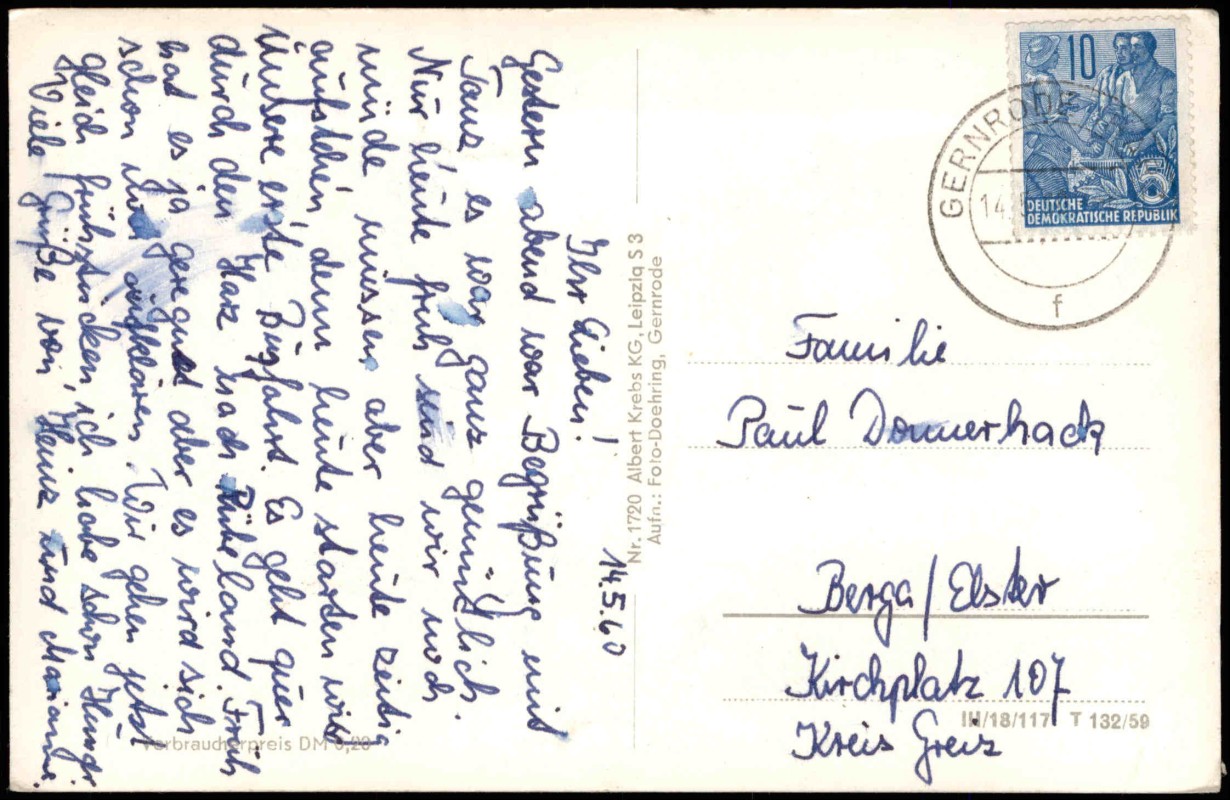 14.5.60
Ihr Lieben!
Gestern abend war Begrüßung mit
Tanz es war ganz gemütlich.
Nur heute früh sind wir noch
müde müssen aber heute zeitig
aufsteh'n, denn heute starten wir
unsere erste Busfahrt. Es geht quer
durch den Harz nach Rübeland. Früh
hat es ja geregnet aber es wird sich
schon noch aufklären. Wir gehen jetzt
gleich frühstücken, ich habe schon Hunger
Viele Grüße von, Heinz und Marianne.
Verbraucherpreis DM 0,20
Nr. 1720 Albert Krebs KG, Leipzig S 3
Aufn.: Foto-Doehring, Gernrode
10
DEUTSCHE
DEMOKRATISCHE REPUBLIK
GERNRODE
14.
f
Familie
Paul Donnerhack
Berga/Elster
Kirchplatz 107
III/18/117 T 132/59
Kreis Greiz